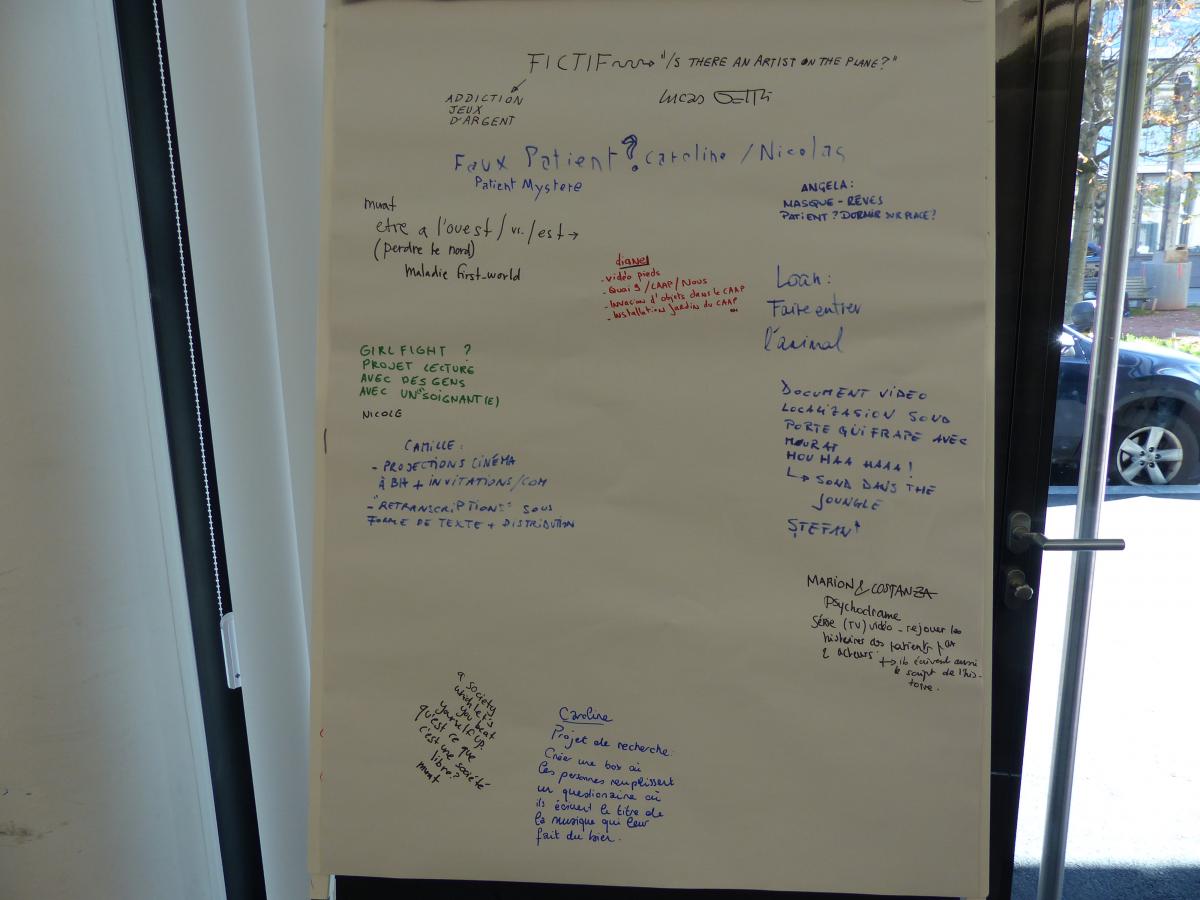 FICTIF "IS THERE AN ARTIST ON THE PLANE?"
ADDICTION
JEUX
D'ARGENT
Lucas
Faux Patient ? caroline / Nicolas
Patient Mystere
ANGELA:
MASQUE - RÊVES
PATIENT? DORMIR SUR PLACE?
murat
etre a l'ouest / vs. / est →
(perdre le nord)
maladie first_world
diane
- vidéo pieds
- Quai 9 / CAAP / Nous
- Invasion d'objets dans le CAAP
- Installation jardin du CAAP
Loan:
Faire entrer
l'animal
GIRLFIGHT ?
PROJET LECTURE
AVEC DES GENS
AVEC UN "SOIGNANT(E)
NICOLE
DOCUMENT VIDEO
LOCALIZASION SOND
PORTE QUI FRAPE AVEC
MOURAT
HOU HAA HAAA!
↳ SOND DANS THE
JOUNGLE
ȘTEFAN
CAMILLE:
- PROJECTIONS CINÉMA
À BH + INVITATIONS/COM
- "RETRANSCRIPTIONS" SOUS
FORME DE TEXTE + DISTRIBUTION
MARION & COSTANZA
Psychodrame
Série (TV) vidéo - rejouer les
histoires des patients par
2 acteurs → ils écrivent aussi
le script de l'his-
toire.
a society
which let's
you beat
yourself up.
qu'est ce que
c'est une société
libre?
murat
Caroline
Projet de recherche:
Créer une box où
les personnes remplissent
un questionaire où
ils écrivent le titre de
la musique qui leur
fait du bien.